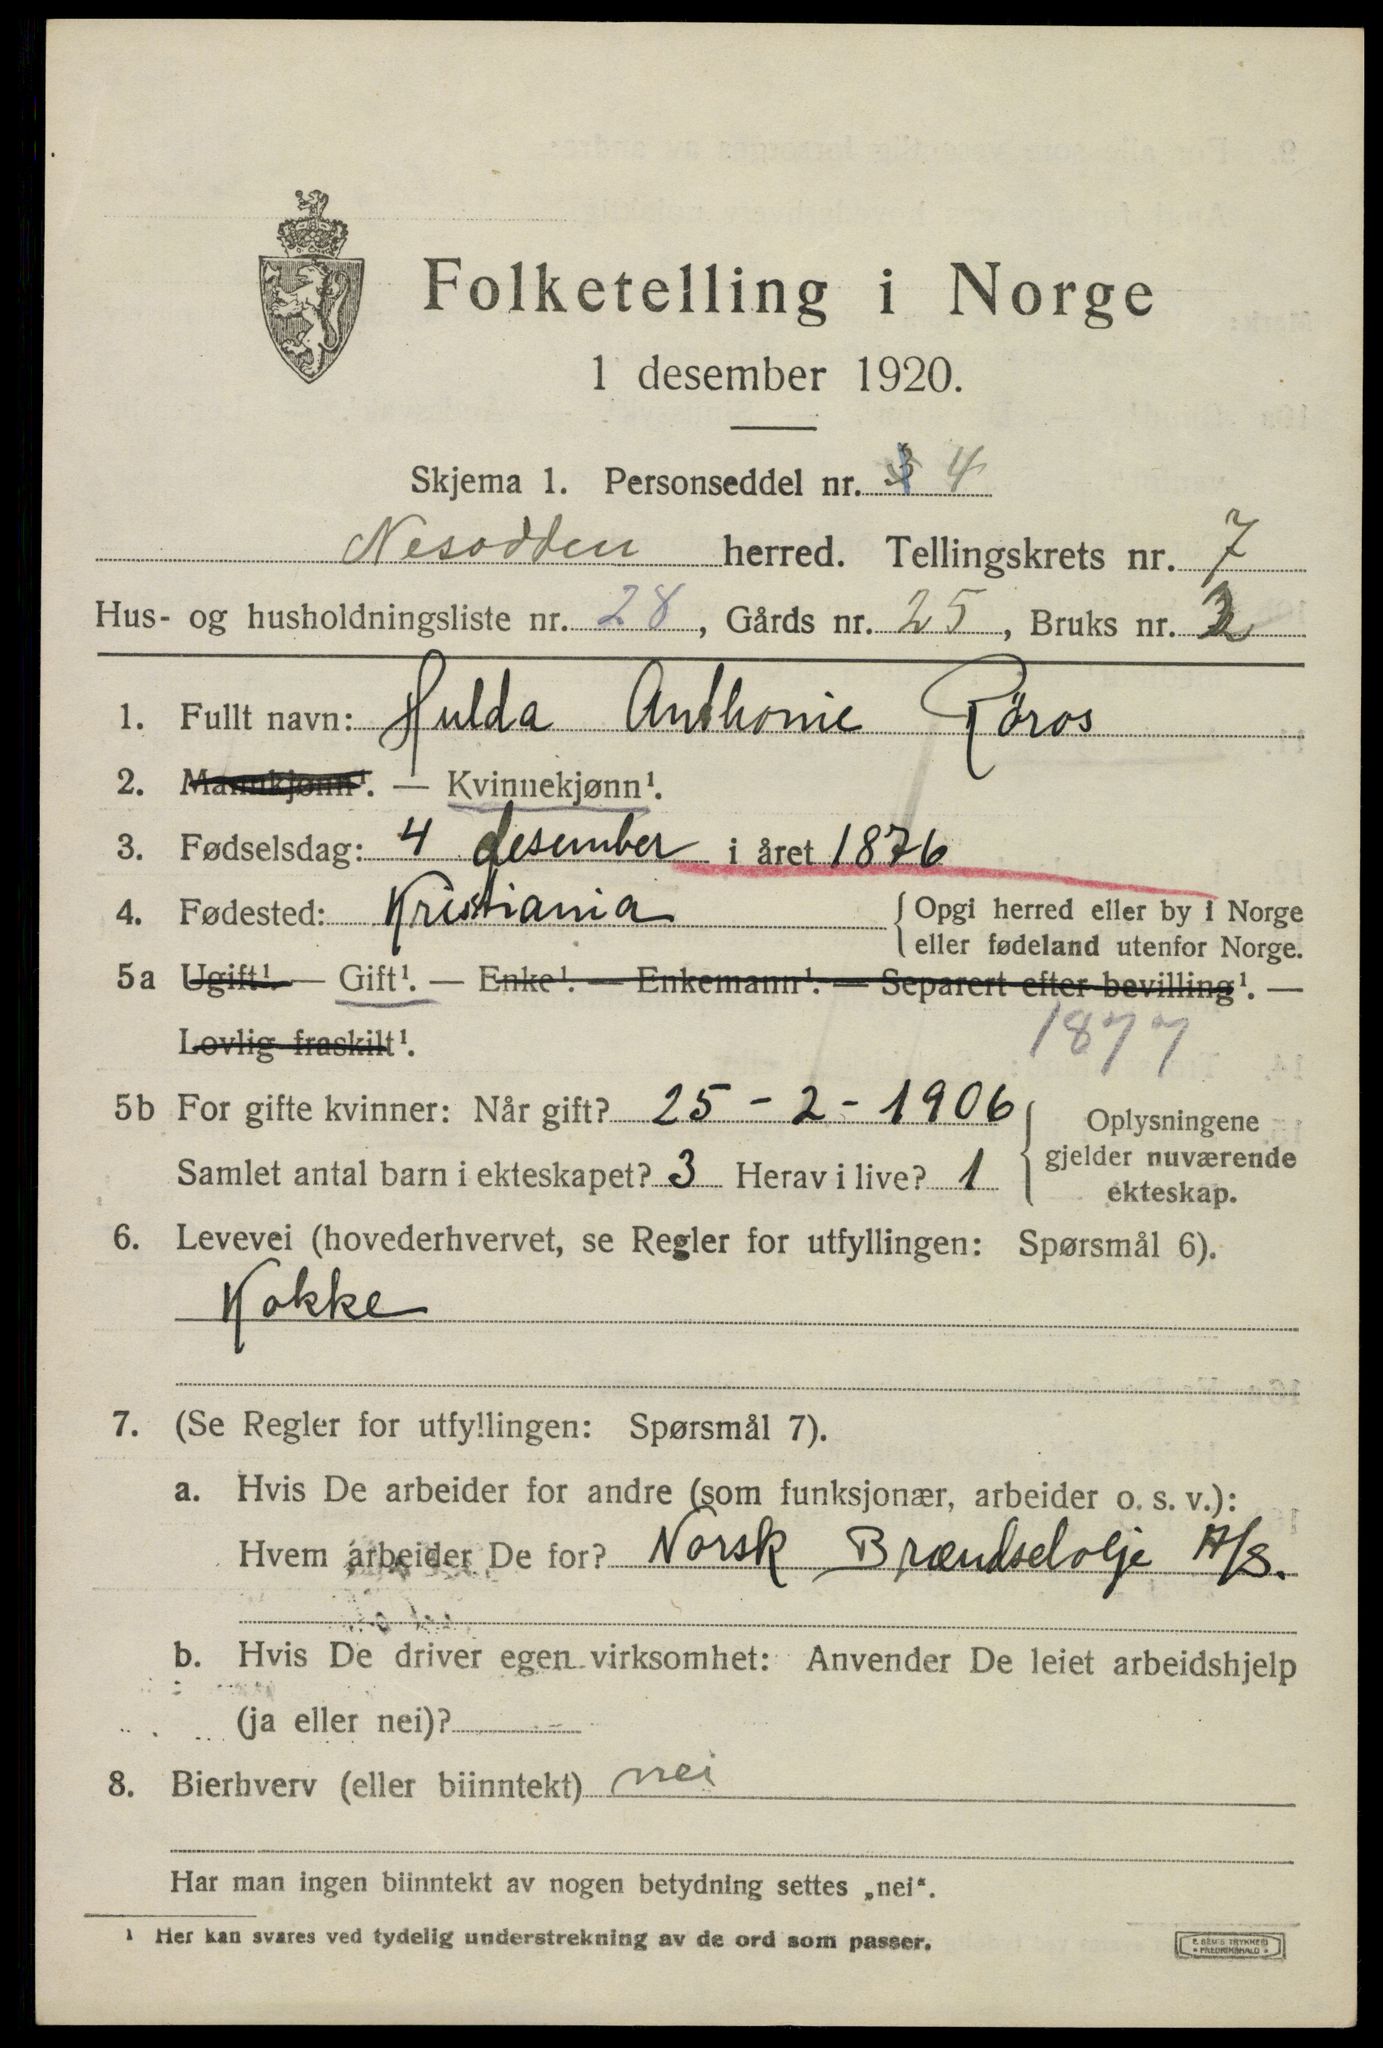 Folketelling i Norge
1 desember 1920.
Skjema 1. Personseddel nr. 4
Nesodden herred. Tellingskrets nr. 7
Hus- og husholdningsliste nr. 28, Gårds nr. 25, Bruks nr. 2
1. Fullt navn: Hulda Anthonie Röros
2. Mannkjønn¹. — Kvinnekjønn¹.
3. Fødselsdag: 4 desember i året 1876
4. Fødested: Kristiania {Opgi herred eller by i Norge
eller fødeland utenfor Norge.
5a Ugift¹. — Gift¹. — Enke¹. — Enkemann¹. — Separert efter bevilling¹. —
Lovlig fraskilt¹.
1877
5b For gifte kvinner: Når gift? 25 - 2 - 1906 { Oplysningene
Samlet antal barn i ekteskapet? 3 Herav i live? 1 gjelder nuværende
ekteskap.
6. Levevei (hovederhvervet, se Regler for utfyllingen: Spørsmål 6).
Kokke
7. (Se Regler for utfyllingen: Spørsmål 7).
a. Hvis De arbeider for andre (som funksjonær, arbeider o. s. v.):
Hvem arbeider De for? Norsk Brændselolje A/S.
b. Hvis De driver egen virksomhet: Anvender De leiet arbeidshjelp
(ja eller nei)?
8. Bierhverv (eller biinntekt) nei
Har man ingen biinntekt av nogen betydning settes „nei“.
¹ Her kan svares ved tydelig understrekning av de ord som passer.
E. SEM'S TRYKKERI
• FREDRIKSHALD •